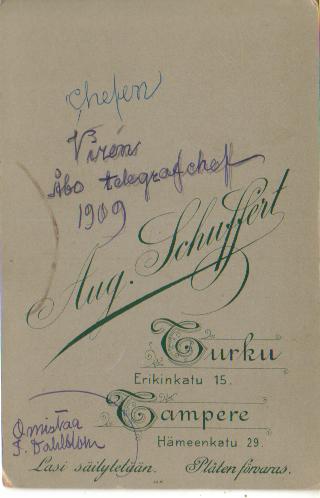 Chefen
Virén
Åbo telegrafchef
1909
Aug. Schuffert
Turku
Erikinkatu 15.
Tampere
Hämeenkatu 29.
Omistaa
F. Dahlblom
Lasi säilytetään. Plåten förvaras.